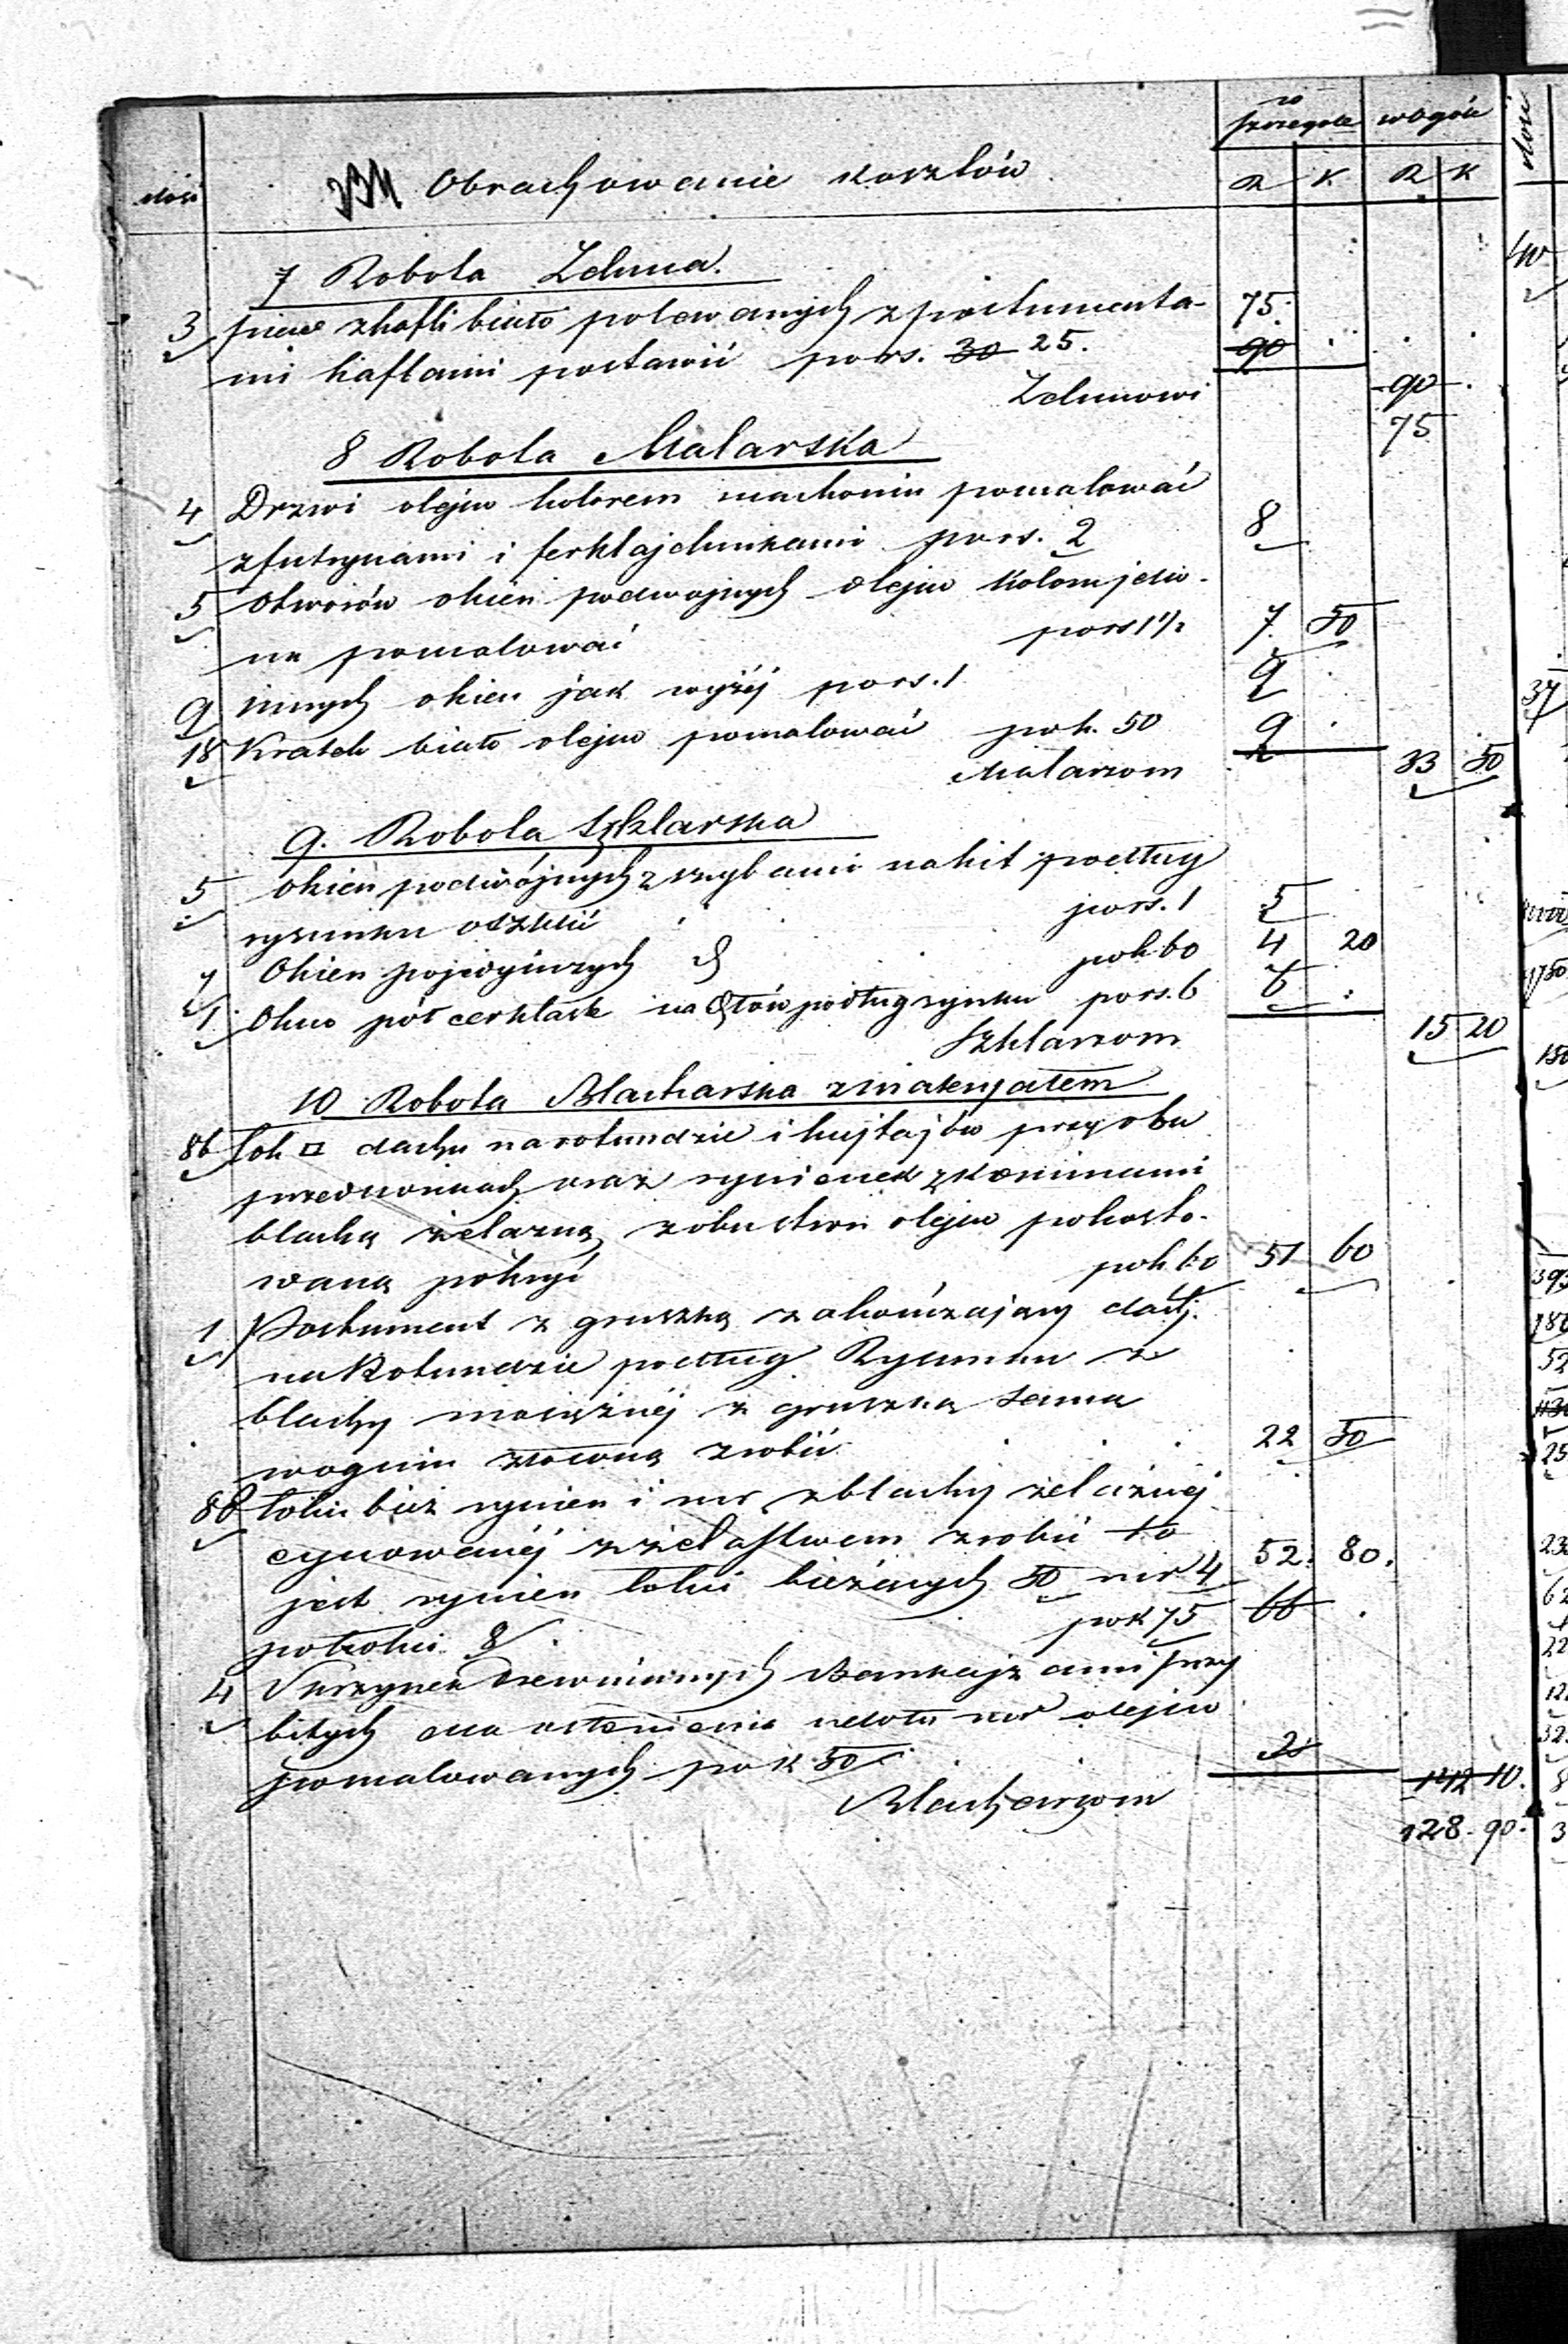 w
szczegole wogóle
ilość 334 Obrachowanie kosztów R K R K
7 Robota Zduna.
3 piece z kafli biało polewanych z postumenta- 75.
mi kaflami postawić po rs. 30 25. 90
Zdunowi 90
75
8 Robota Malarska
4 Drzwi olejno kolorem machoniu pomalować
z futrynami i ferklajdunkami po rs. 2 8
5 otworów okien podwojnych olejno kolom jedw-
na pomalować po rs 1½ 7. 50
9 innych okien jak wyżéj po rs. 1 9
18 Kratek biało olejno pomalować po k. 50 9
Malarzom 33 50
9. Robota Szklarska
5 okien podwójnych z szybami na kit podług
rysunku oszklić po rs. 1 5
7 Okien pojedyńczych po k 60 4 20
1 Okno półcerklaste podług rysnku po rs. 6 6
Szklarzom 15 20
10 Robota Blacharska z materyałem
86 Łok □ dachu na rotundzie i kujtajów przy obu
przedsionkach oraz rynienek z kominami
blachą żelazną z obu stron olejno pokosto-
waną pokryć po k 60 51 60
1 Postument z gruszką zakończający dach
na Rotundzie podług Rysunku z
blachy mosiężnéj z gruszką sama
w ogniu złoconą zrobić 22 50
88 łokci bież rynien i rur z blachy żelaznéj
cynowanéj z żelastwem zrobić to
jest rynien łokci bieżących 50 rur 4 52. 80.
po łokci 8 po k 75 66
4 Skrzynek drewnianych Bankajzami przy
bitych dla osłonienia u dołu rur olejno
pomalowanych po k 50 2
Blacharzom 142 10.
128. 90.